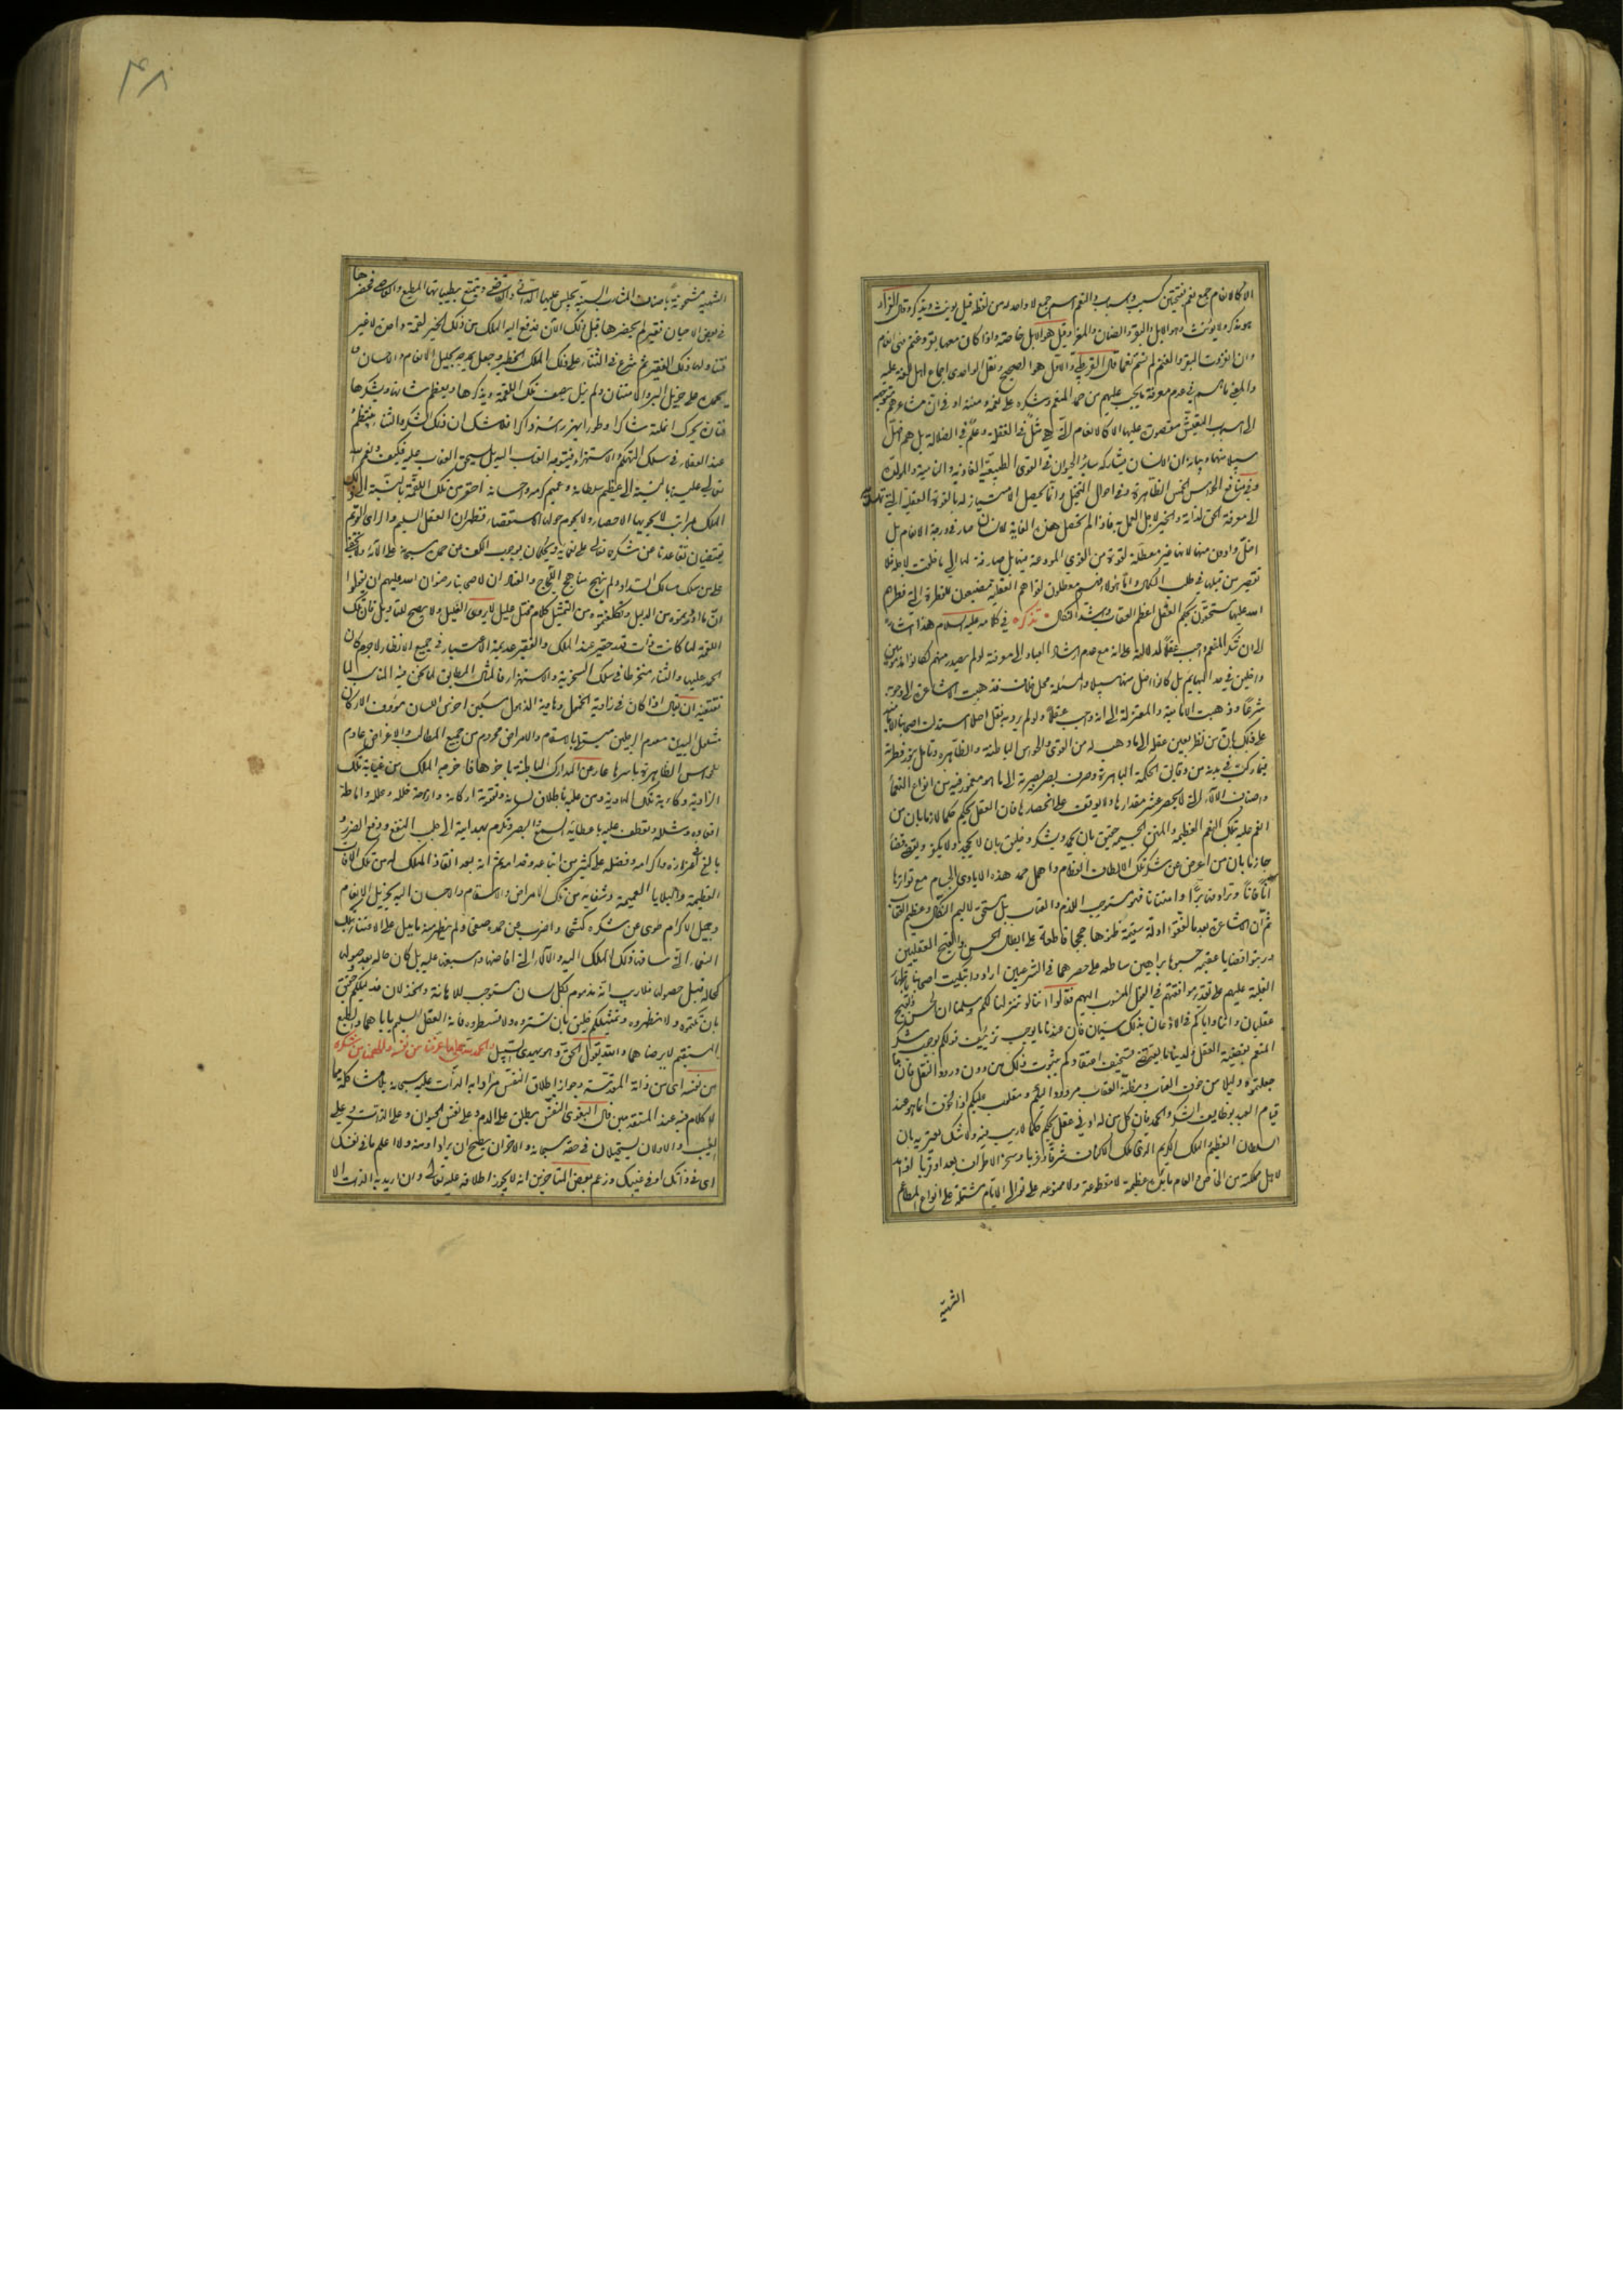 الا كالانعام جمع نعم بفتحتين كسبب واسباب والنعم اسم جمع لا واحد له من لفظه قيل يونث ويذكر وقال الفراء
هو مذكر ولا يؤنث وهو الابل والبقر والضان والمعز وقيل هو الابل خاصة واذا كان معها بقر وغنم فهى انعام
وان انفردت البقر والغنم لم تسم نعما قال القرطبي والاول هو الصحيح ونقل الواحدى اجماع اهل اللغة عليه
والمعنى ما هم في عدم معرفة ما يجب عليهم من حمد المنعم وشكره على نعمه ومننه او في ان مشاعرهم متوجهة
الى اسباب التعيش مقصورة عليها الا كالانعام التى هي مثل فى الغفلة وعلم في الضلالة بل هم اضل
سبيلا منها وبيانه ان الانسان يشاركه سائر الحيوان فى القوى الطبيعية الغاذية والنامية والمولدة
وفي منافع الحواس الخمس الظاهرة وفي احوال التخيل وانما يحصل الامتياز له بالقوة العقلية التى تهديه
الى معرفة الحق لذاته والخير لاجل العمل به فاذا لم تحصل هذه الغاية للانسان صار فى درجة الانعام بل
اضل وادون منها لانها غير معطلة لقوة من القوى المودعة فيها بل صارفة لها الى ما خلقت لاجله فلا
تقصير من قبلها فى طلب الكمال واما هؤلاء فهم معطلون لقواهم العقلية مضيعون للفطرة التى فطرهم
الله عليها مستحقون بحكم العقل اعظم العقاب واشد النكال تذكرة في كلامه عليه السلام هذا اشارة
الى ان شكر المنعم واجب عقلا لدلالته على انه مع عدم ارشاد العباد الى معرفته لو لم يصدر منهم لكانوا مذمومين
داخلين في حد البهائم بل كانوا اضل منها سبيلا والمسئلة محل خلاف فذهبت الاشاعرة الى وجوبه
شرعا وذهبت الامامية والمعتزلة الى انه واجب عقلا ولو لم يرد به نقل اصلا استدلت اصحابنا الامامية
على ذلك بان من نظر بعين عقله الى ما وهب له من القوى والحواس الباطنة والظاهرة وتامل بنور فطرته
فيما ركب في بدنه من دقائق الحكمة الباهرة وصرف بصر بصيرته الى ما هو مغمور فيه من انواع النعماء
واصناف الآلاء التى لا يحصر عشر مقدارها ولا يوقف على انحصارها فان العقل يحكم حكما لازما بان من
انعم عليه بتلك النعم العظيمة والمنن الجسيمة حقيق بان يحمد ويشكر وخليق بان لا يجحد ولا يكفر ويقضى قضاء
جازما بان من اعرض عن شكر تلك الالطاف العظام واهمل حمد هذه الايادى الجسام مع تواترها
آنا فآنا وترادفها برا وامتنانا فهو مستوجب للذم والعتاب بل مستحق لاليم النكال وعظيم العقاب
ثم ان الاشاعرة بعد ما لفقوا ادلة سقيمة ظنوها حججا قاطعة على ابطال الحسن والقبح العقليين
ورتبوا قضايا عقيمة حسبوها براهين ساطعة على حصرهما في الشرعيين ارادوا تبكيت اصحابنا باظهار
الغلبة عليهم على تقدير موافقتهم في القول المنسوب اليهم فقالوا اننا لو تنزلنا لكم وسلمنا ان الحسن والقبح
عقليان واننا واياكم فى الاذعان بذلك سيان فان عندنا ما يوجب تزييف قولكم بوجوب شكر
المنعم بقضية العقل ولدينا ما يقتضى تسخيف اعتقادكم بثبوت ذلك من دون ورود النقل فان ما
جعلتموه دليلا من خوف العقاب ومظنة العقاب مردود اليكم ومقلوب عليكم اذ الخوف انما هو عند
قيام العبد بوظايف الشكر والحمد فان كل من له ادنى عقل يحكم حكما لا ريب فيه ولا شك يعتريه بان
السلطان العظيم والملك الكريم الذى ملك الاكناف شرقا وغربا وسخر الاطراف بعدا وقربا اذا مد
لاهل مملكته من الخاص والعام مائدة عظيمة لا مقطوعة ولا ممنوعة على توالى الايام مشتملة على انواع المطاعم
الشهية
۴۸
الشهية مشحونة باصناف المشارب السنية يجلس عليها الدانى والقاصى ويتمتع بطيباتها المطيع والعاصى فحضرها
فى بعض الاحيان فقير لم يحضرها قبل تلك الآن فدفع اليه الملك من ذلك الخبز لقمة واحدة لا غير
فتناولها ذلك الفقير ثم شرع فى الثناء على ذلك الملك الخطير وجعل يمدحه بجليل الانعام والاحسان و
يحمده على جزيل البر والامتنان ولم يزل يصف تلك اللقمة ويذكرها ويعظم شانها ويشكرها
فتارة يحرك انملته شاكرا وطورا يهز راسه ذاكرا فلا شك ان ذلك الشكر والثناء ينتظم
عند العقلاء فى سلك التهكم والاستهزاء فيتوجه العتاب اليه بل يستحق العقاب عليه فكيف ونعم الله
تعالى علينا بالنسبة الى عظيم سلطانه وعميم كرمه واحسانه احقر من تلك اللقمة بالنسبة الى ذلك
الملك بمراتب لا يحويها الاحصاء ولا يحوم حولها الاستقصاء فظهر ان العقل السليم والراى القويم
يقتضيان تقاعدنا عن شكره تعالى على نعمائه ويحكمان بوجوب الكف عن حمده سبحانه على آلائه ولا يخفى
على من سلك مسالك السداد ولم ينهج مناهج اللجاج والعناد ان لاصحابنا رضوان الله عليهم ان يقولوا
ان ما اوردتموه من الدليل وتكلفتموه من التمثيل كلام مختل عليل لا يروى الغليل ولا يصلح للتاويل فان تلك
اللقمة لما كانت ذات قدر حقير عند الملك والفقير عديمة الاعتبار فى جميع الانظار لا جرم كان
الحمد عليها والثناء منخرطا فى سلك السخرية والاستهزاء فالمثال المطابق لما نحن فيه المناسب لما
نقتفيه ان يقال اذا كان فى زاوية الخمول وهاوية الذهول مسكين اخرس اللسان مؤوف الاركان
مشلول اليدين معدوم الرجلين مبتلى بالاسقام والامراض محروم من جميع المطالب والاغراض عادم
للحواس الظاهرة باسرها عار عن المدارك الباطنة باخرها فاخرجه الملك من غيابة تلك
الزاوية وكآبة تلك الهاوية ومن عليه باطلاق لسانه وتقوية اركانه وازاحة خلله وعلله واماطة
اقعاده وشلله وتعطف عليه باعطائه السمع والبصر وتكرم بهدايته الى جلب النفع ودفع الضرر و
بالغ فى اعزازه واكرامه وفضله على كثير من اتباعه وخدامه ثم انه بعد انقاذ الملك له من تلك الآفات
العظيمة والبلايا العميمة وشفائه من تلك الامراض والاسقام والاحسان اليه بجزيل الانعام
وجميل الاكرام طوى عن شكره كشحا واضرب عن حمده صفحا ولم يظهر منه ما يدل على الاعتناء بتلك
النعماء التى ساقها ذلك الملك اليه والآلاء التى افاضها واسبغها عليه بل كان حاله بعد حصولها
كحاله قبل حصولها فلا ريب انه مذموم بكل لسان مستوجب للاهانة والخذلان فدليلكم حقيق
بان تكتموه ولا تظهروه وتمثيلكم خليق بان تستروه ولا تسطروه فان العقل السليم ياباهما والطبع
المستقيم لا يرضاهما والله يقول الحق وهو يهدى السبيل والحمد لله على ما عرفنا من نفسه والهمنا من شكره
من نفسه اى من ذاته المقدسة وجواز اطلاق النفس مرادا به الذات عليه سبحانه بلا مشاكلة مما
لا كلام فيه عند المتقدمين قال البغوى النفس يطلق على الدم وعلى نفس الحيوان وعلى الذات وعلى
الغيب والاولان يستحيلان فى حقه سبحانه والاخران يصلح ان يرادا ومنه ولا اعلم ما فى نفسك
اى فى ذاتك او فى غيبك وزعم بعض المتاخرين انه لا يجوز اطلاقه عليه تعالى وان اريد به الذات الا